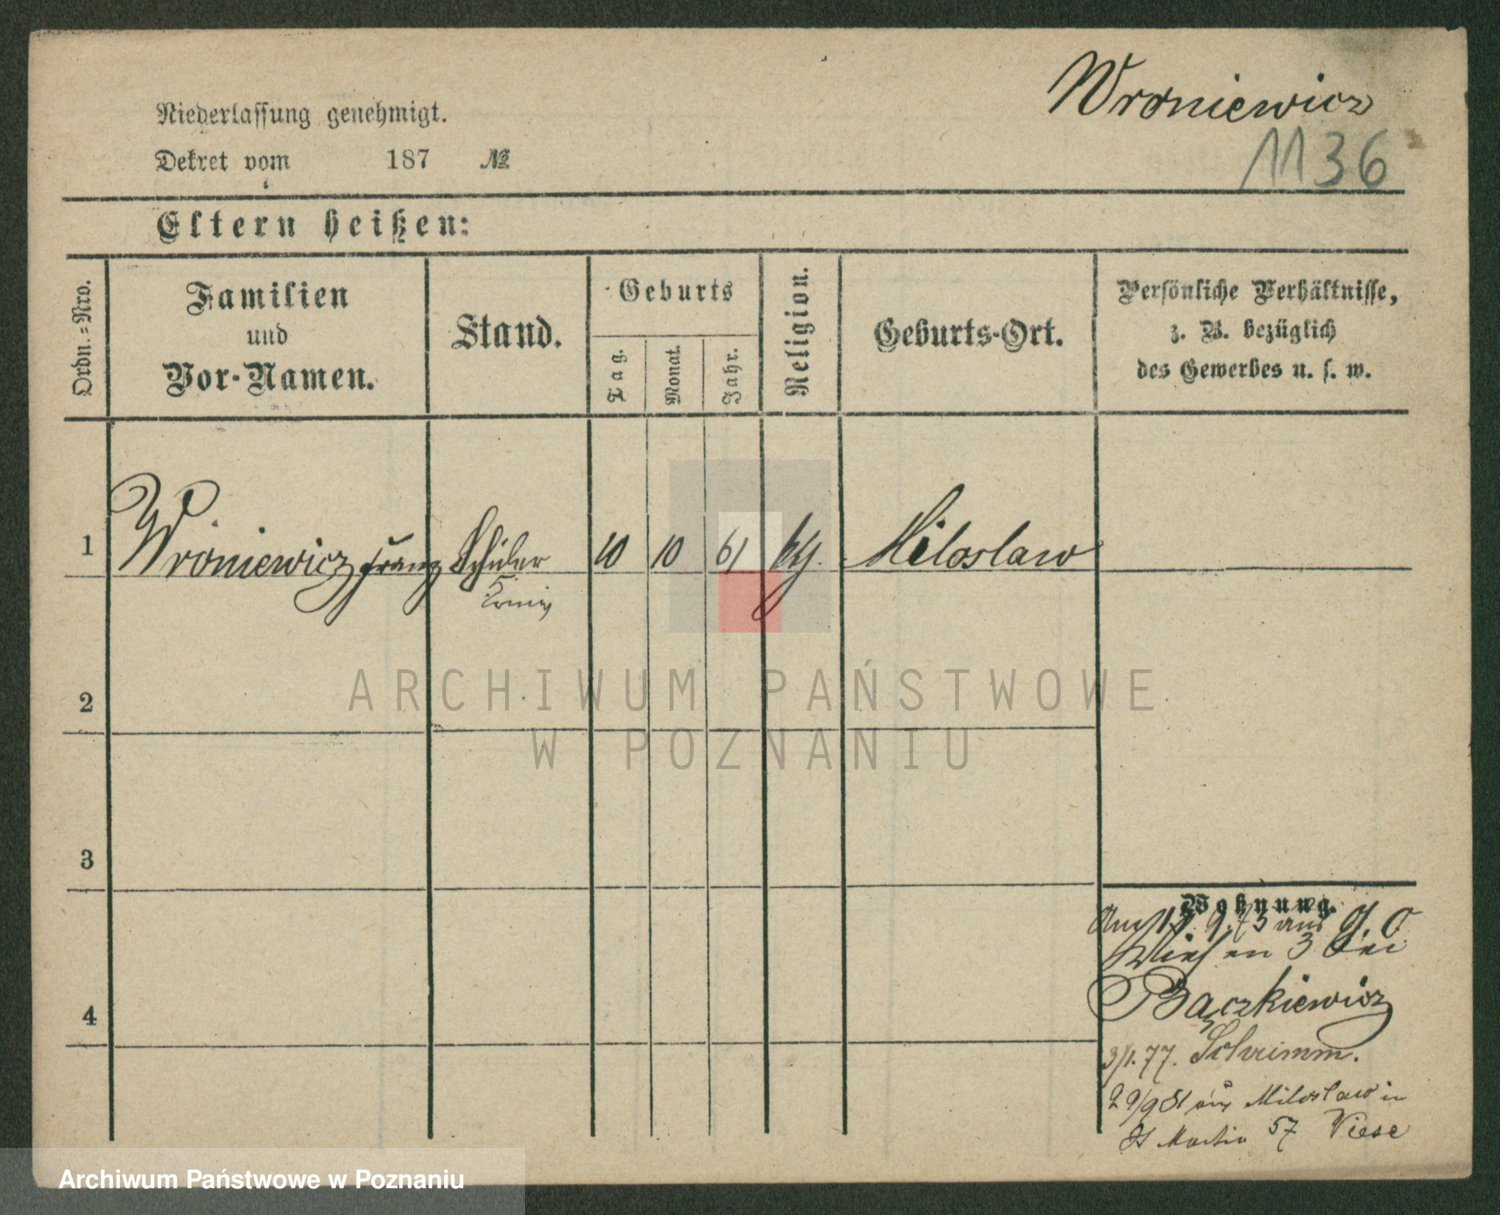 Wroniewicz
1136
Niederlassung genehmigt.
Dekret vom 187 №
Eltern heißen:
Ordn.=Nro.
Familien
und
Vor-Namen.
Stand.
Geburts
Tag.
Monat.
Jahr.
Religion.
Geburts-Ort.
Persönliche Verhältnisse,
z. B. bezüglich
des Gewerbes u. s. w.
1 Wroniewicz Franz Schüler 10 10 61 Miloslaw
2
3
4
Wohnung.
9. 73 aus
3 bei
Bączkiewicz
3/1. 77. Schrimm.
29/9 81 aus Miloslaw in
St Martin 57 Viese
ARCHIWUM PAŃSTWOWE
W POZNANIU
Archiwum Państwowe w Poznaniu